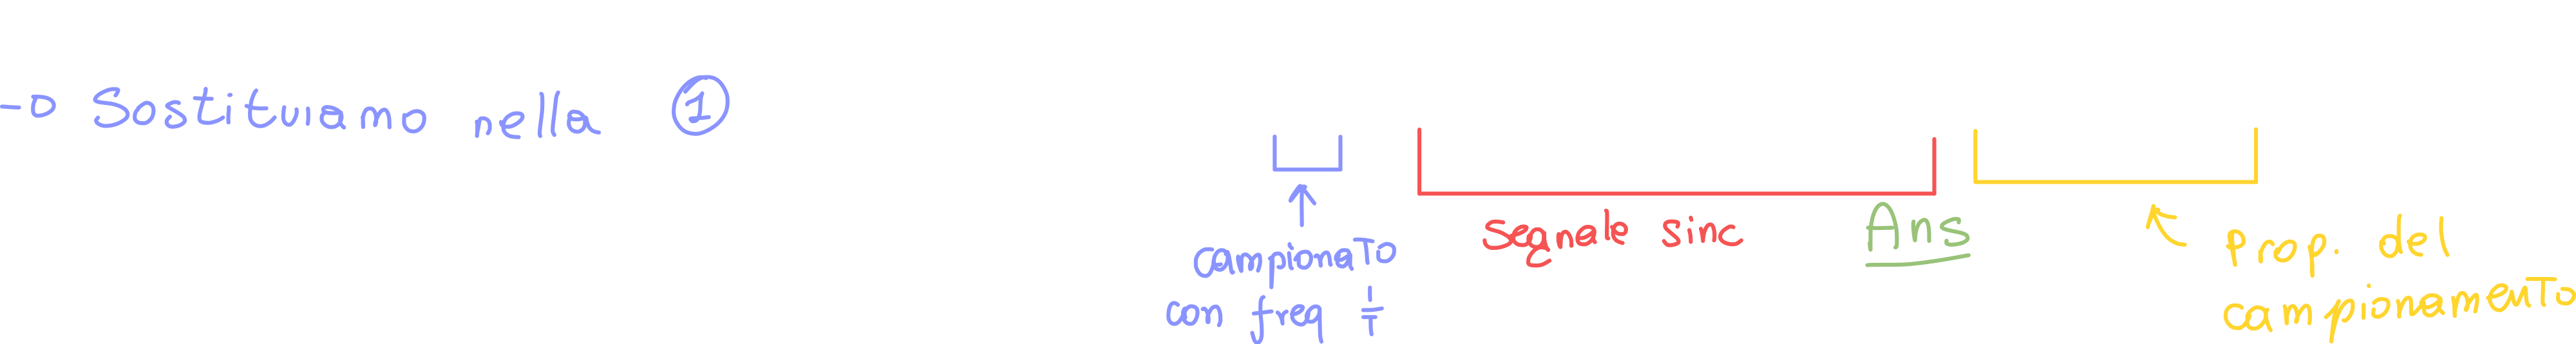 -o Sostituiamo nella ①
campionato
con freq 1/T
Segnale sinc
Ans
Prop. del
campionamento